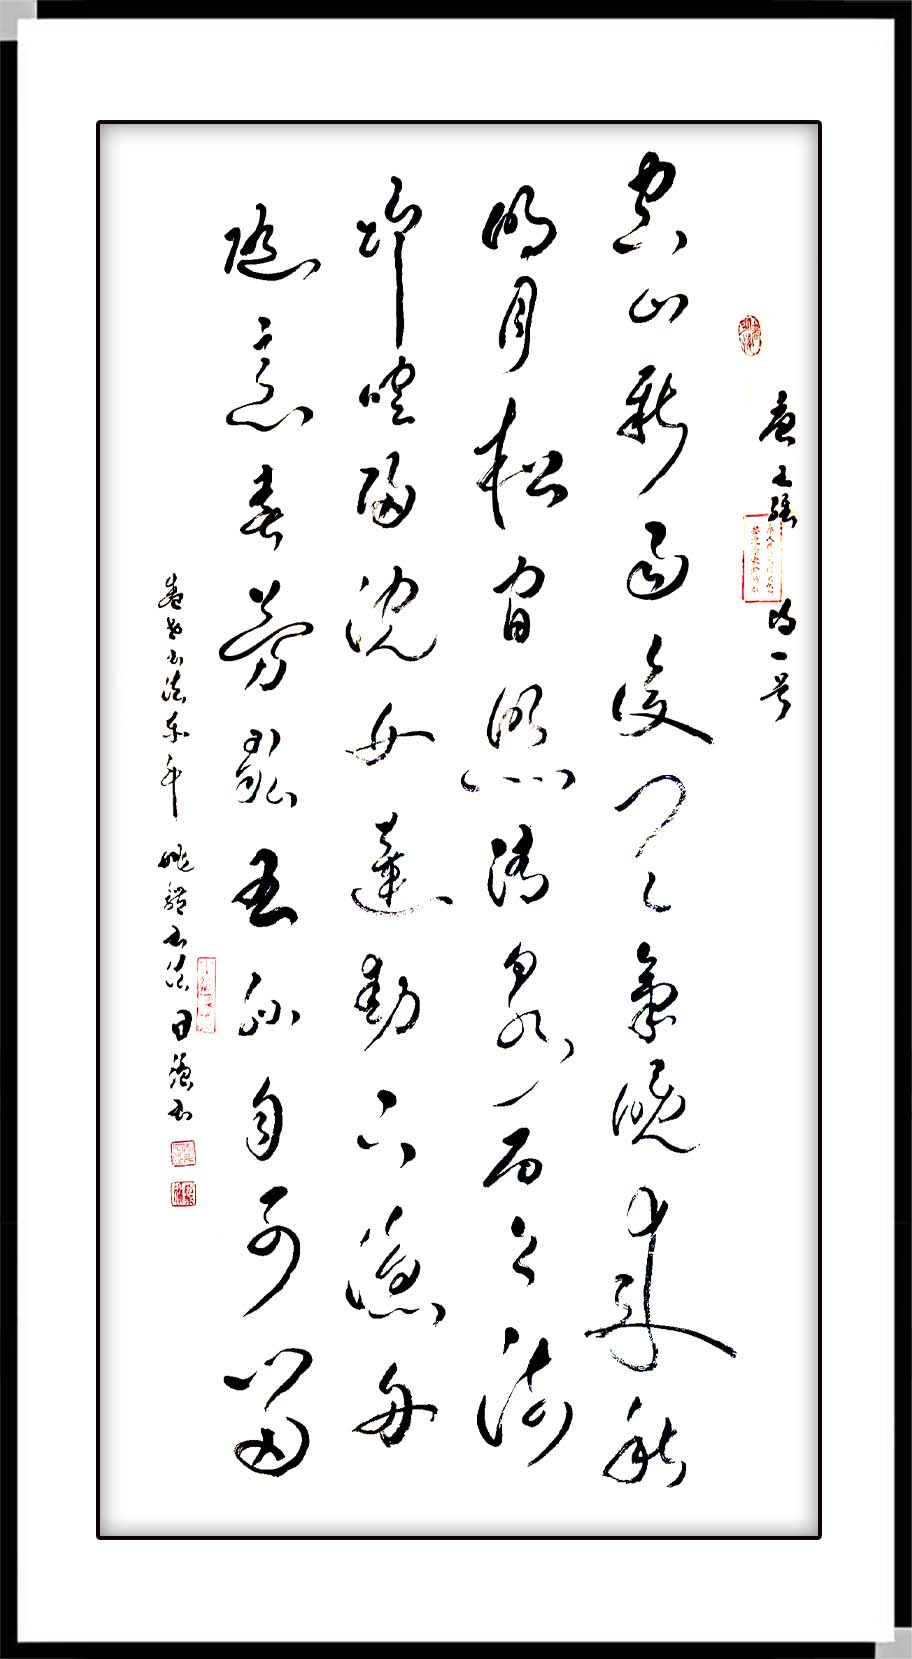 唐王維詩一首
空山新雨後天氣晚來秋
明月松間照清泉石上流
竹喧歸浣女蓮動下漁舟
隨意春芳歇王孫自可留
姚體書法